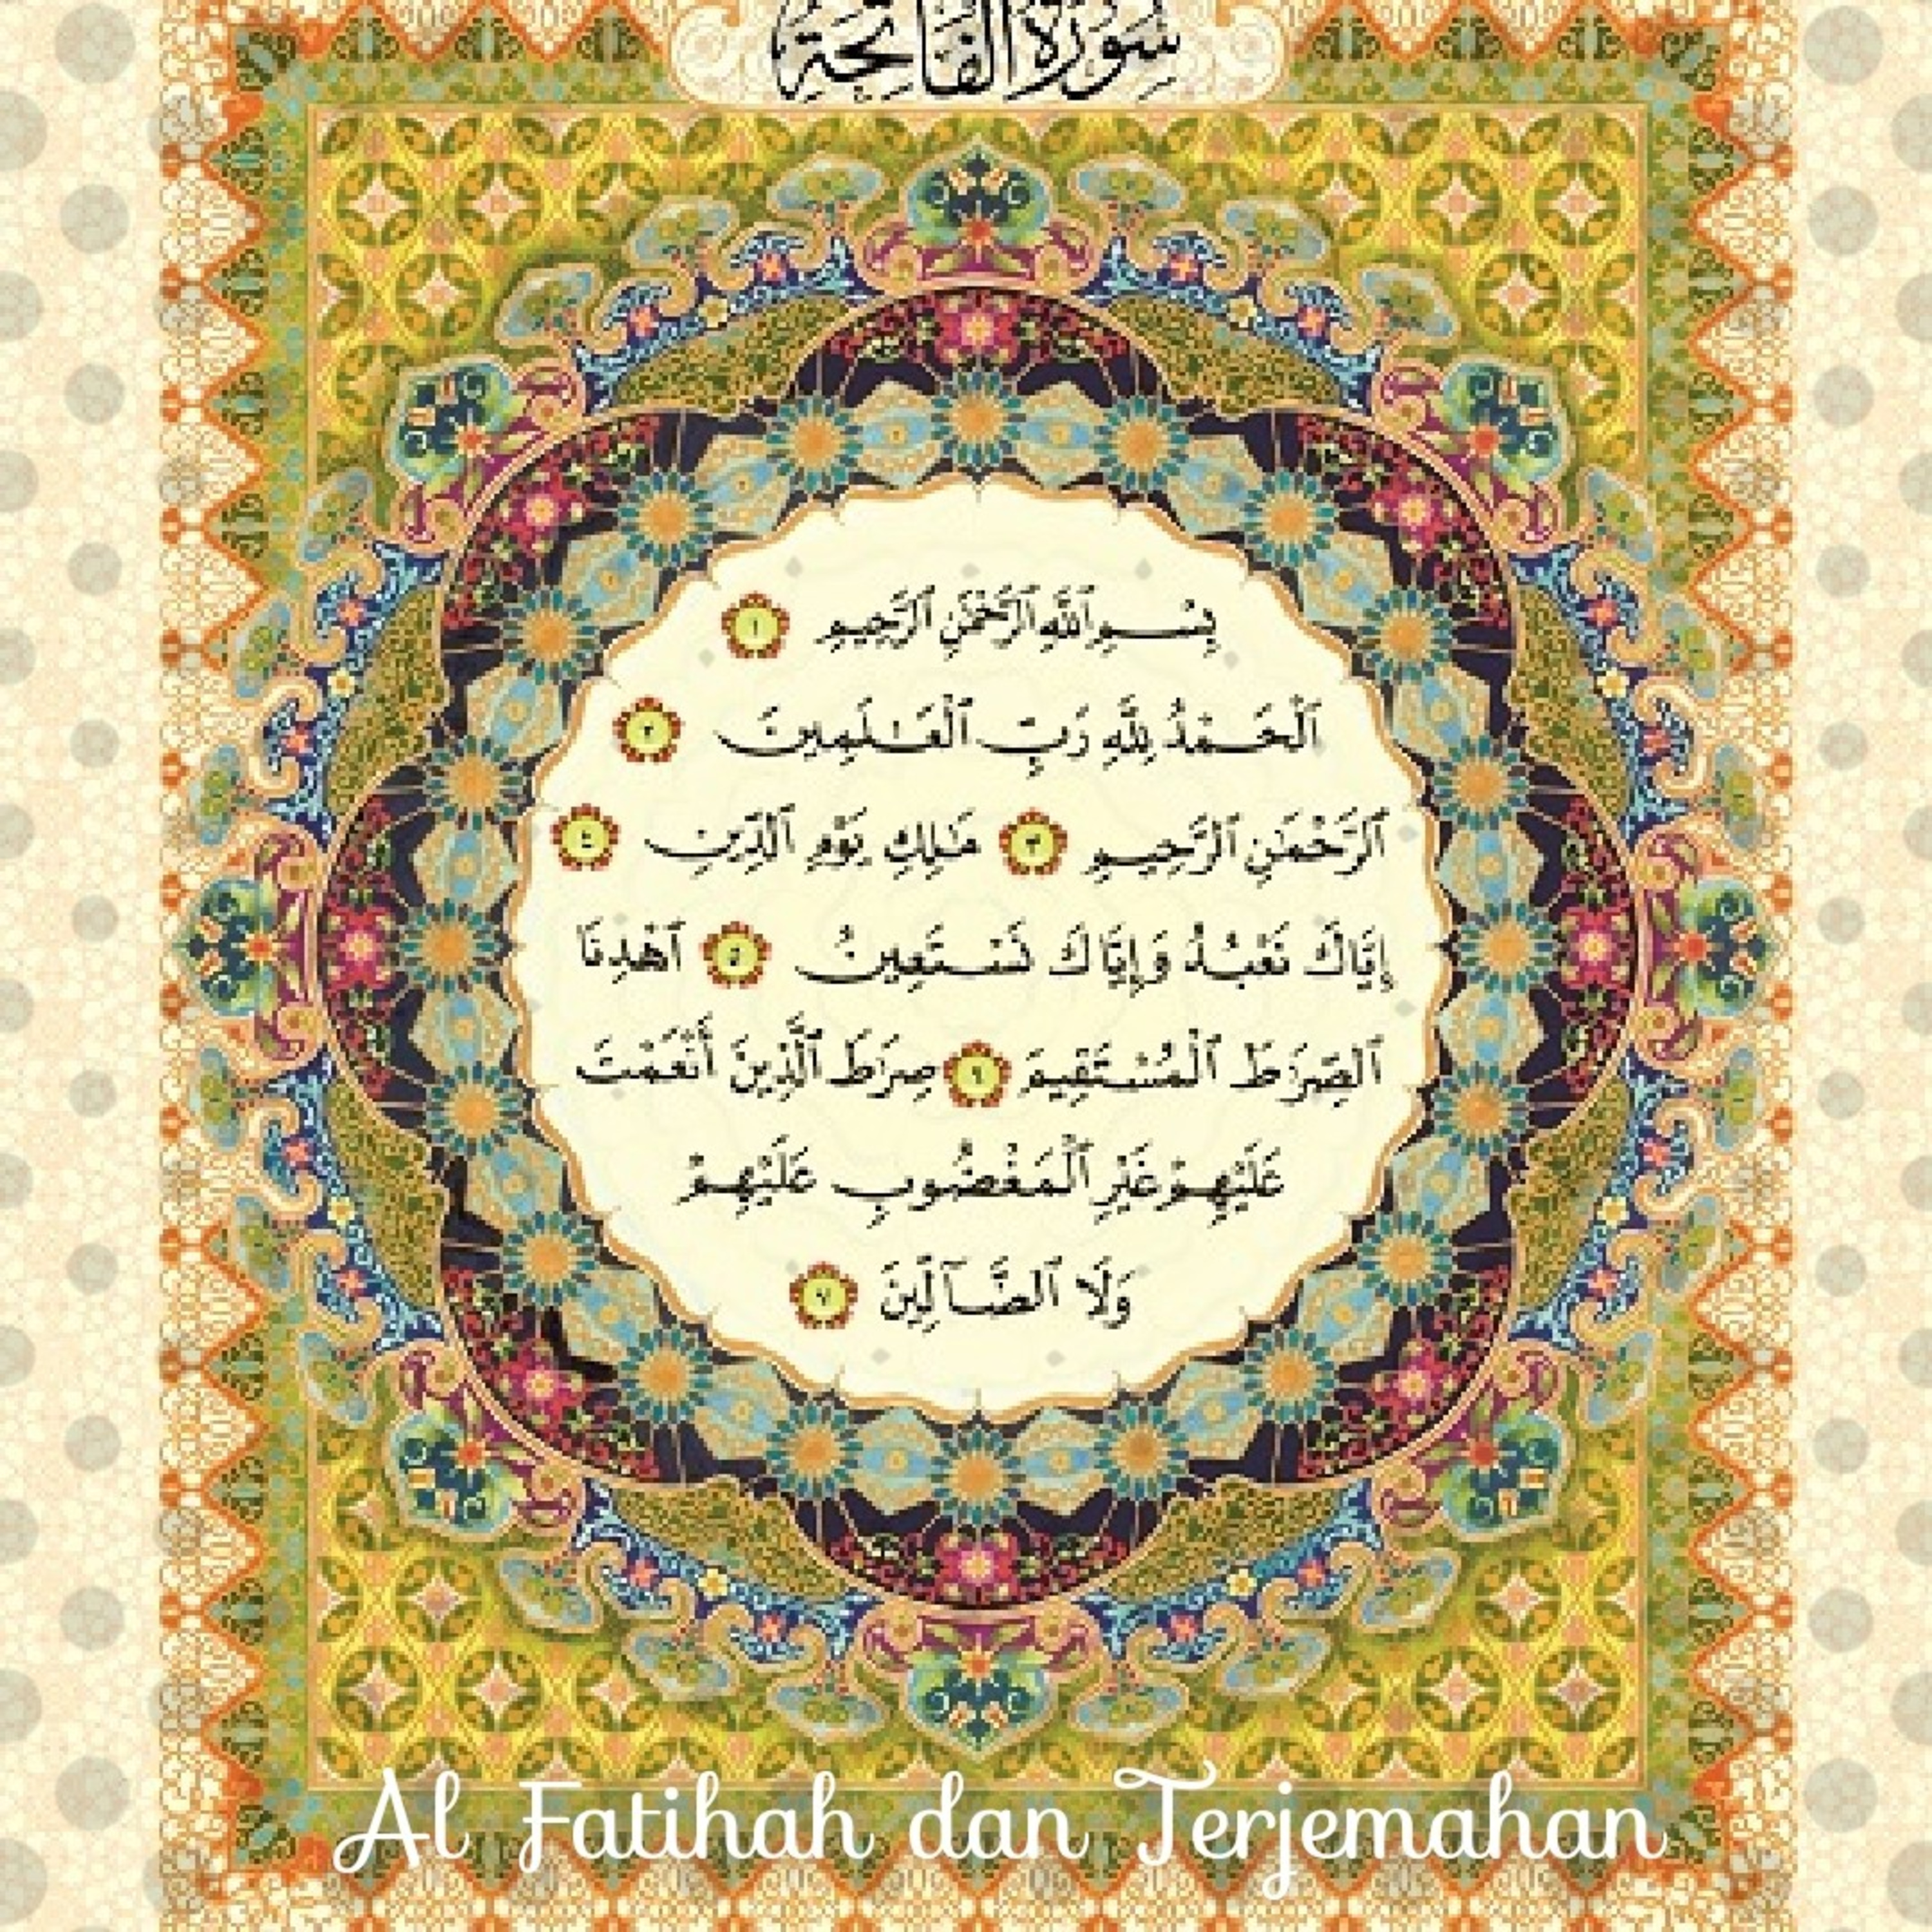 سُورَةُ الْفَاتِحَةِ
بِسْمِ ٱللَّهِ ٱلرَّحْمَٰنِ ٱلرَّحِيمِ ١
ٱلْحَمْدُ لِلَّهِ رَبِّ ٱلْعَـٰلَمِينَ ٢
ٱلرَّحْمَٰنِ ٱلرَّحِيمِ ٣ مَـٰلِكِ يَوْمِ ٱلدِّينِ ٤
إِيَّاكَ نَعْبُدُ وَإِيَّاكَ نَسْتَعِينُ ٥ ٱهْدِنَا
ٱلصِّرَٰطَ ٱلْمُسْتَقِيمَ ٦ صِرَٰطَ ٱلَّذِينَ أَنْعَمْتَ
عَلَيْهِمْ غَيْرِ ٱلْمَغْضُوبِ عَلَيْهِمْ
وَلَا ٱلضَّآلِّينَ ٧
Al Fatihah dan Terjemahan